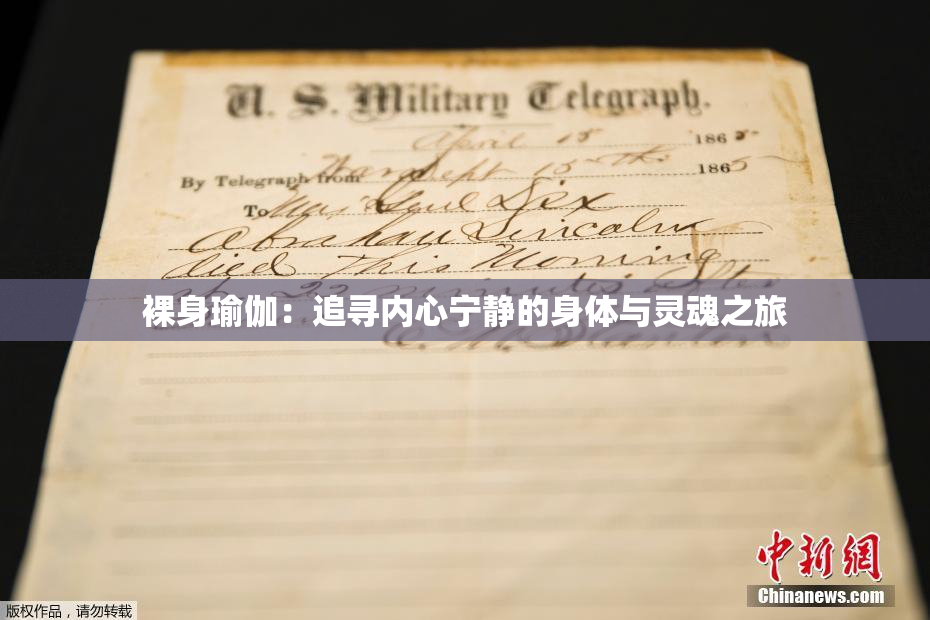 U. S. Military Telegraph.
April 15 1865
By Telegraph from War Dept 15th 1865
To Maj Genl Dix
Abraham Lincoln
died This Morning
at 22 minutes after
裸身瑜伽：追寻内心宁静的身体与灵魂之旅
E. M. Stanton
中新網
Chinanews.com
版权作品，请勿转载